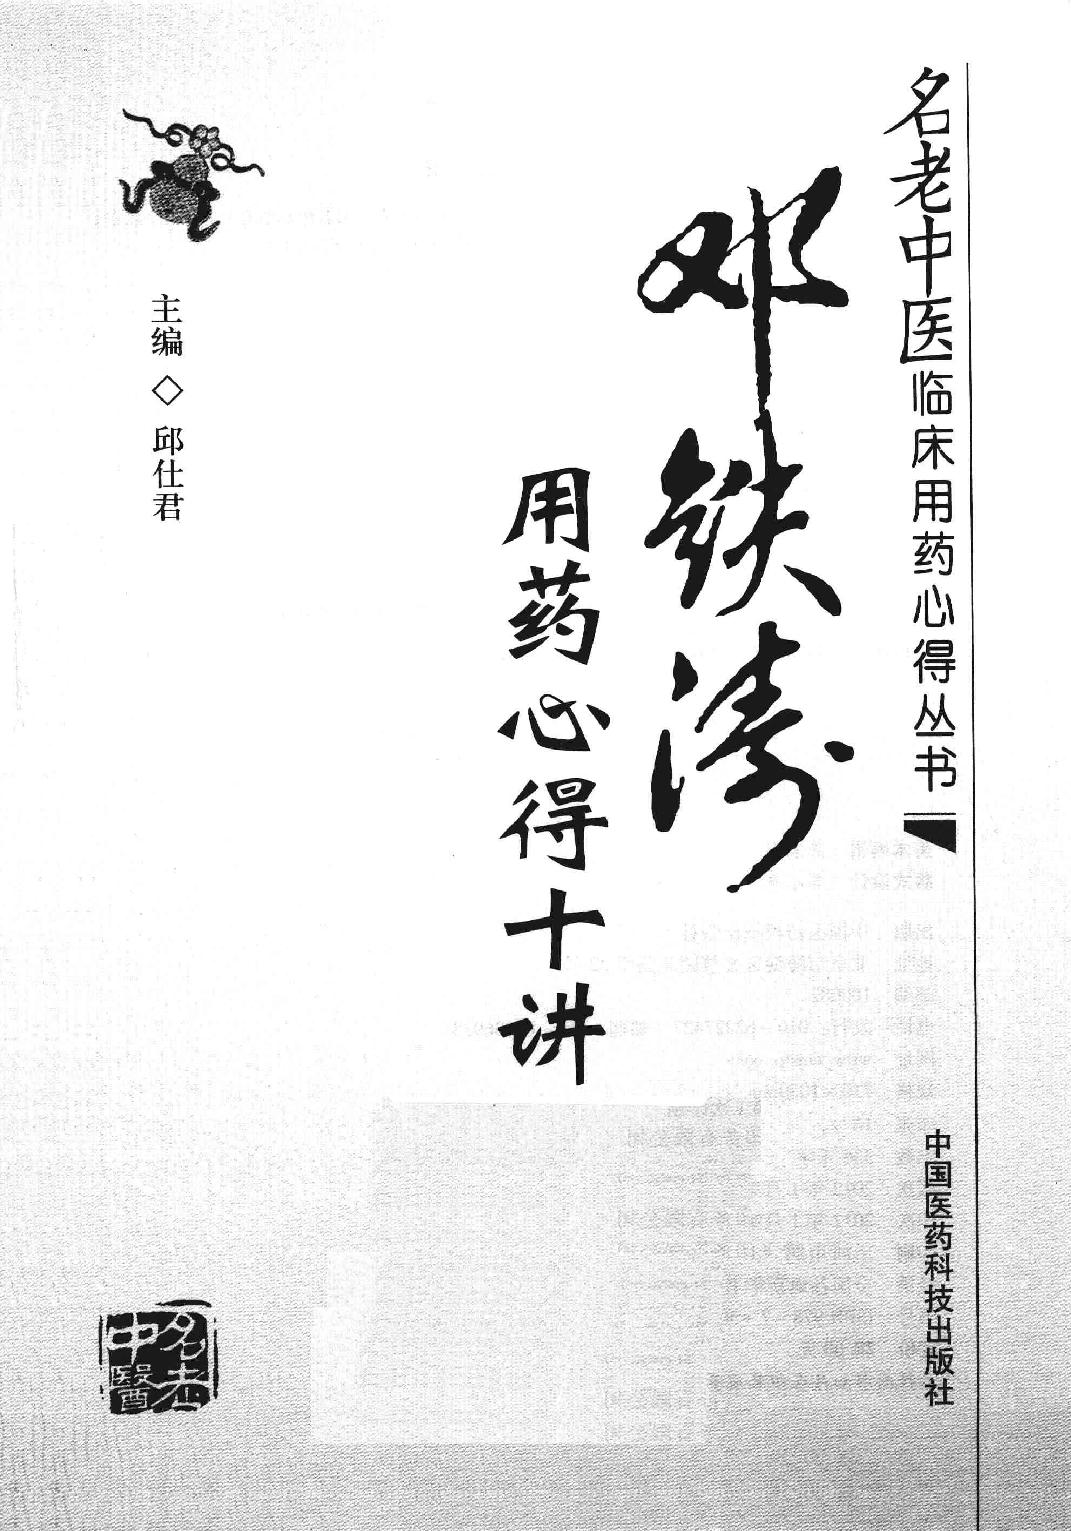 名老中医临床用药心得丛书
邓铁涛
用药心得十讲
主编◇邱仕君
中国医药科技出版社
名老
中醫